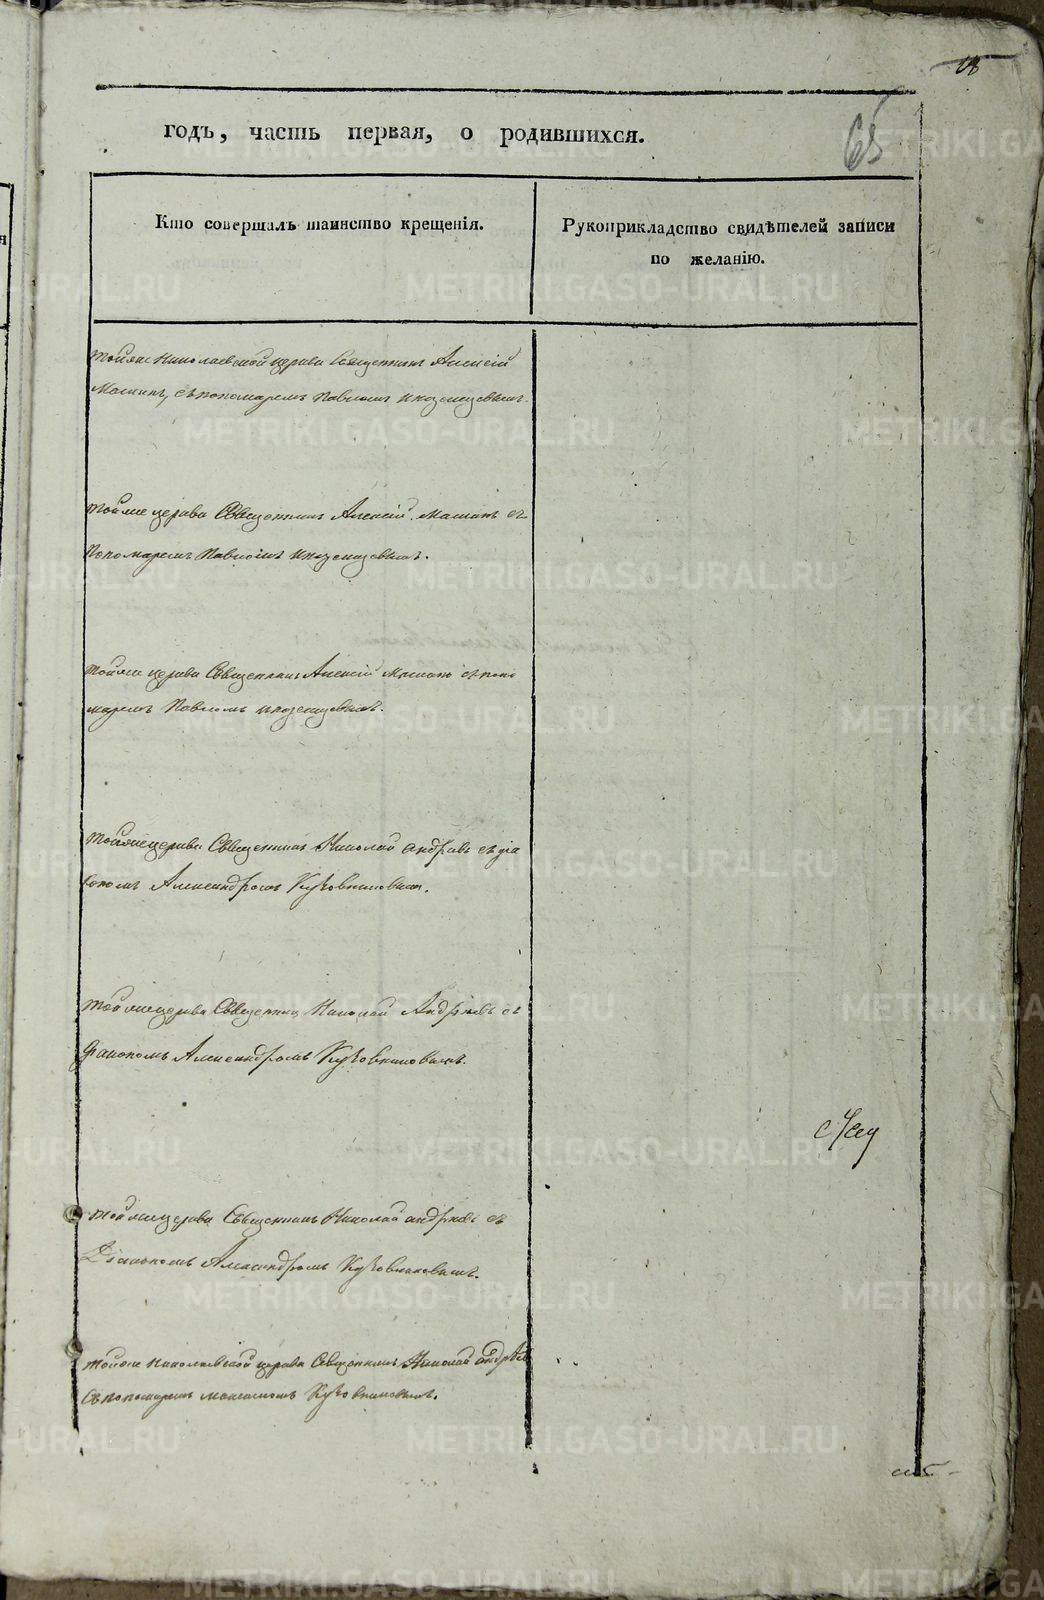 18
65
годъ, часть первая, о родившихся.
Кто совершалъ таинство крещенія.
Рукоприкладство свидѣтелей записи
по желанію.
тойже Николаевской церкви Священникъ Алексій
Машинъ, съ пономаремъ Павломъ Иноземцовымъ.
тойже церкви Священникъ Алексій Машинъ съ
Пономаремъ Павломъ Иноземцовымъ.
тойже церкви Священникъ Алексій Машинъ съ поно
маремъ Павломъ Иноземцовымъ.
тойже церкви Священникъ Николай Андр съ діа
кономъ Александромъ Кузовниковымъ.
тойже церкви Священникъ Николай съ
Діакономъ Александромъ Кузовниковымъ.
тойже церкви Священникъ Николай съ
Діакономъ Александромъ Кузовниковымъ.
тойже Николаевской церкви Священникъ Николай
Съ пономаремъ Кузовниковымъ.
METRIKI.GASO-URAL.RU